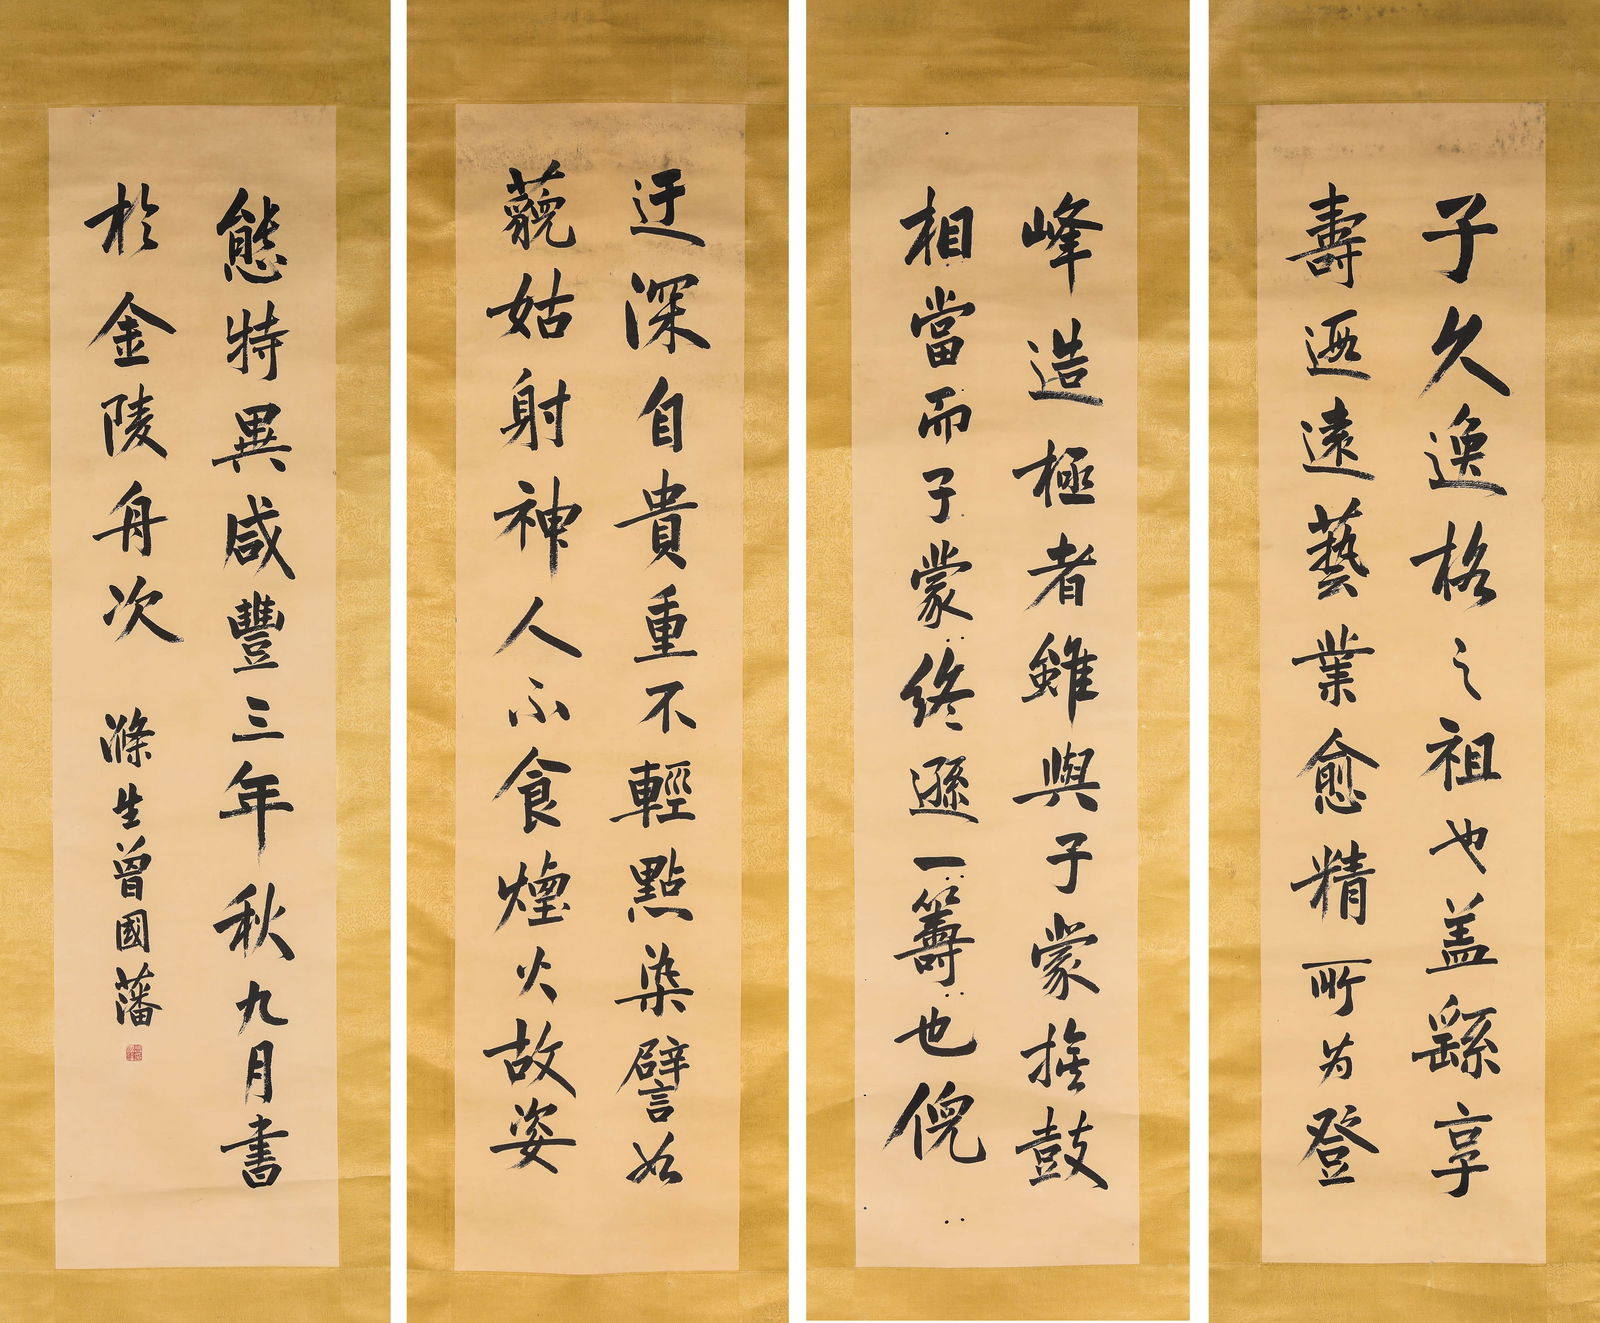 子久逸格之祖也盖繇享
壽遐遠藝業愈精所为登
峰造極者雖與子蒙旗鼓
相當而子蒙終遜一籌也倪
迂深自貴重不輕點染譬如
藐姑射神人不食煙火故姿
態特異咸豐三年秋九月書
於金陵舟次
滌生曾國藩